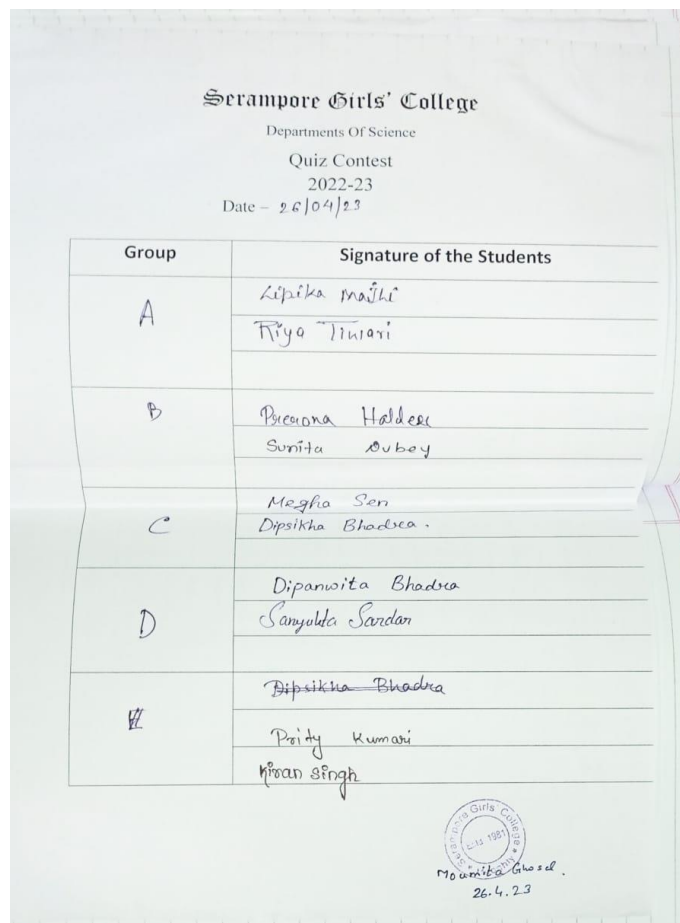 Serampore Girls' College
Departments Of Science
Quiz Contest
2022-23
Date – 26/04/23
Group Signature of the Students
A
Lipika Majhi
Riya Tiwari
B
Prerona Halder
Sunita Dubey
C
Megha Sen
Dipsikha Bhadra.
D
Dipanwita Bhadra
Sanyukta Sardar
Dipsikha Bhadra
Prity Kumari
Kiran Singh
Serampore Girls' College
Estd 1981
Moumita Ghosal.
26.4.23